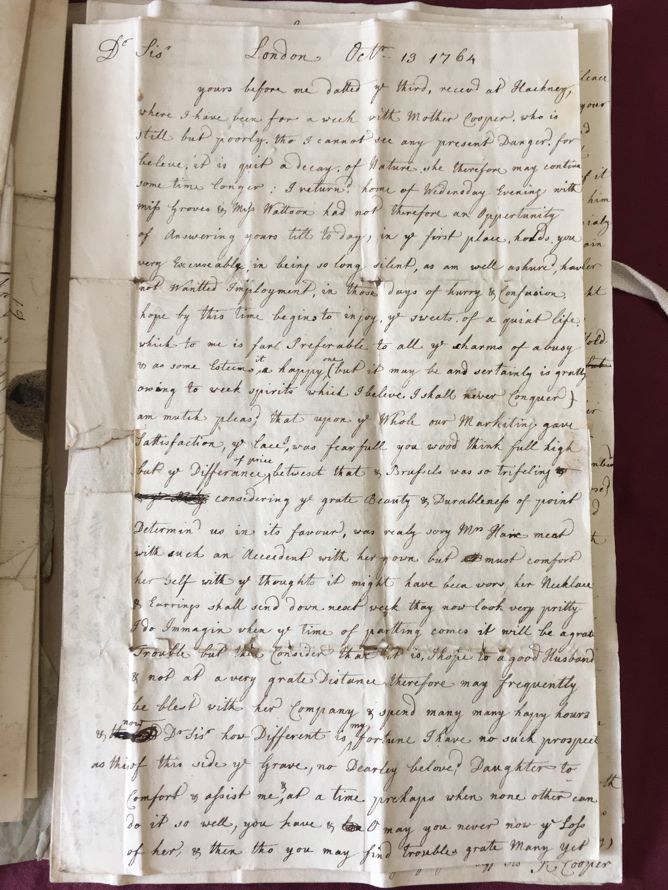 Dr Sisr London Octbr 13 1764
yours before me datted ye third, recevd at Hackney,
where I have been for a week with Mother Cooper, who is
still but poorly, tho I cannot see any present Danger, for
beleve it is quit a decay of Nature, she therefore may contine
some time Longer: I returnd home of Wedensday Evening with
miss Groves & Miss Wattoon had not therefore an Oppertunity
of Answering yours till to day, in ye first place, holds you
very Excuseable, in being so long silent, as am well ashured, haveing
not Wanted Imployment, in those days of hurry & Confusion,
hope by this time begins to enjoy ye sweets of a quiat life
which to me is farr Preferable to all ye sharms of a busy
& as some Esteem it a happy one (but it may be and sertainly is gratly
owing to week spirits which I beleve I shall never Conquer)
am mutch pleasd that upon ye Whole our Marketing gave
Sattisfaction, ye Lace, was fearfull you wood think full high
but ye Differance of price betwext that & Brussels was so trifeling
considering ye grate Beauty & Durableness of point
Determind us in its favour, was realy sory Mrs Hair meet
with such an Accedent with her gown but must comfort
her self with ye thoughts it might have been wors, her Necklace
& Earrings shall send down next week thay now look very pritty
I do Immagin when ye time of partting comes it will be a grat
Trouble but then Consider that it is, I hope to a good Husband
& not at a very grate Distance therefore may frequently
be blest with her Company & spend many many happy hours
& now Dr Sisr how Different is my fortune I have no such prospect
as this of this side ye Grave, no Dearley belovd Daughter to
Comfort & assist me & at a time prehaps when none other can
do it so well, you have & O may you never now ye Loss
of her, & then tho you may find troubles grate Many yet
K Cooper